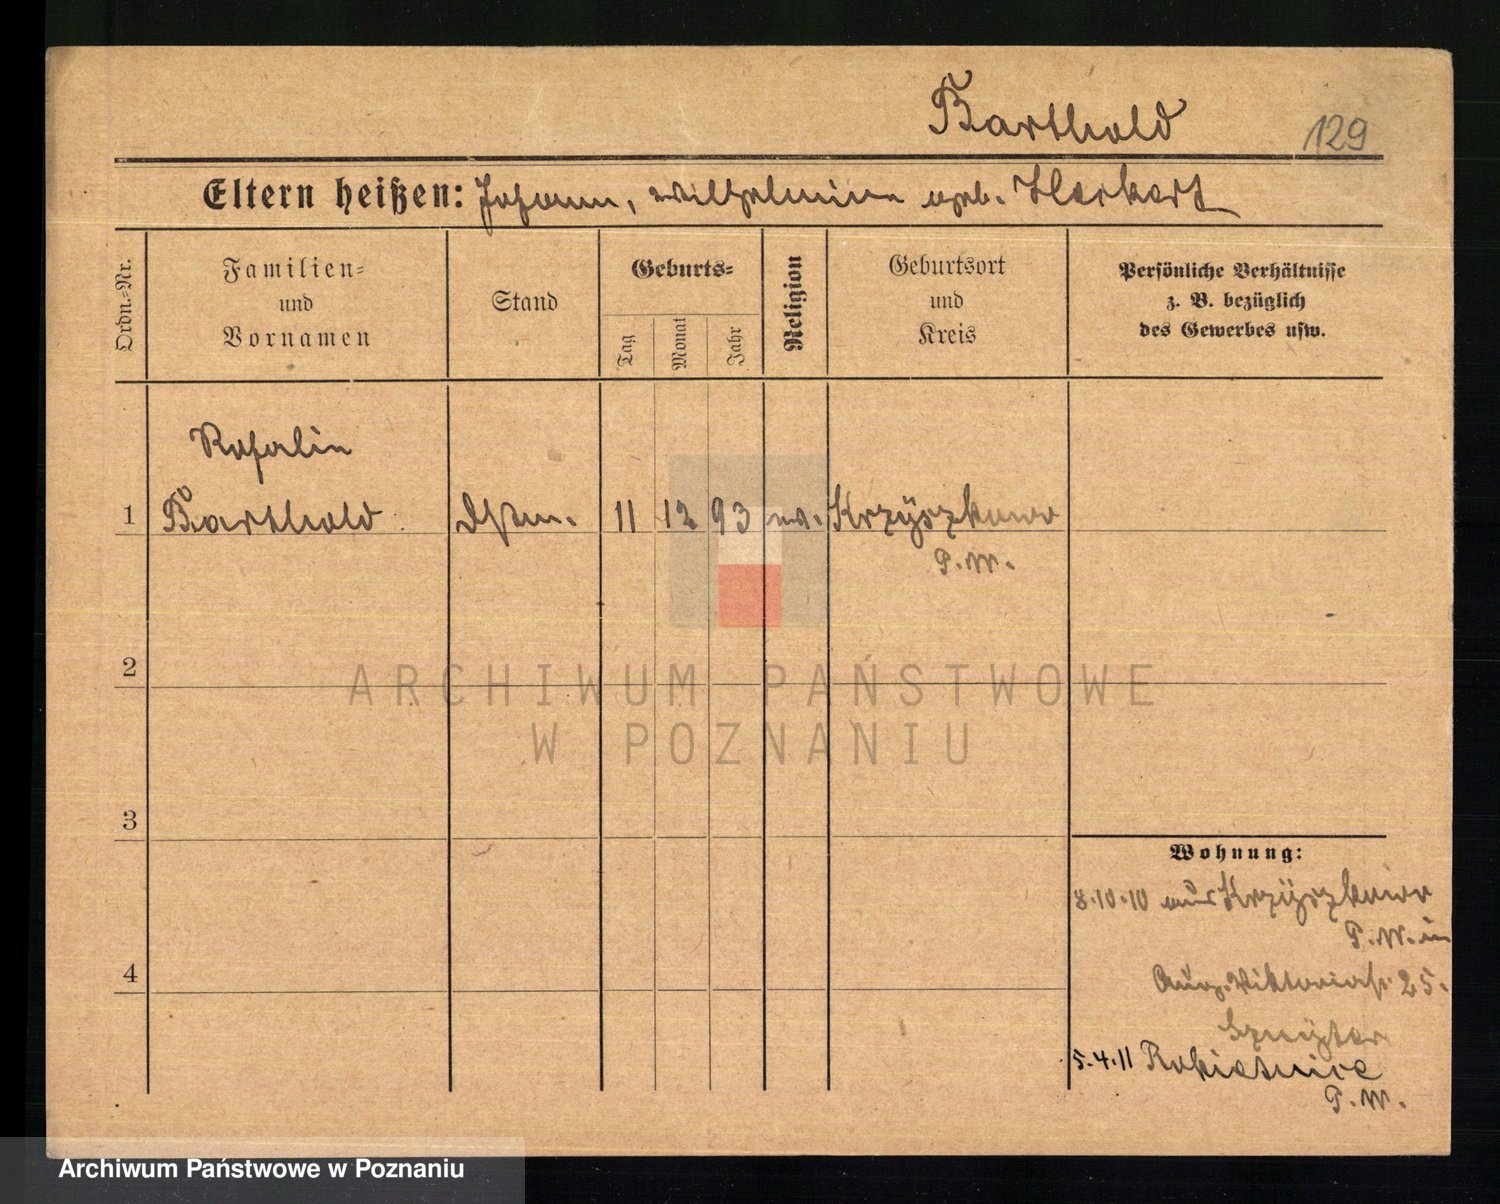 Barthold
129
Eltern heißen: Johann, Wilhelmine geb. Herkert
Ordn.-Nr.
Familien-
und
Vornamen
Stand
Geburts-
Tag
Monat
Jahr
Religion
Geburtsort
und
Kreis
Persönliche Verhältnisse
z. B. bezüglich
des Gewerbes usw.
Rosalie
1 Barthold Dstm. 11 12 93 ev. Krzyszkowo
P.W.
2
3
4
ARCHIWUM PAŃSTWOWE
W POZNANIU
Wohnung:
8.10.10 aus Krzyszkowo
P.W. in
Aug. Viktoriastr. 25.
5.4.11 Rokietnice
P.W.
Archiwum Państwowe w Poznaniu